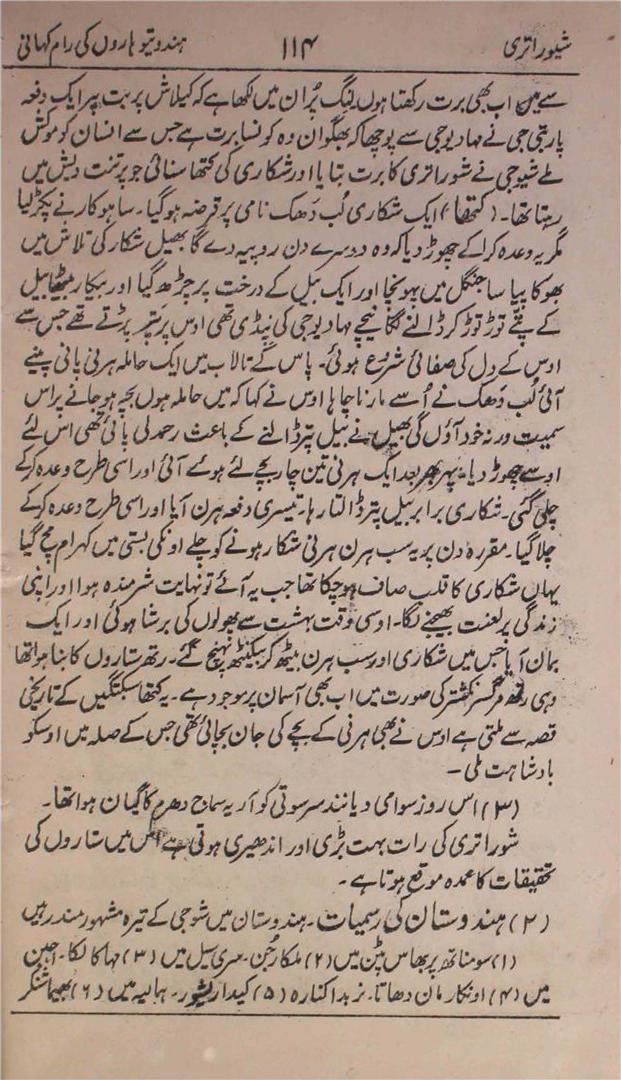 شیوراتری ۱۱۴ ہندو تیوہاروں کی رام کہانی
سے میں اب بھی برت رکھتا ہوں لنگ پُران میں لکھا ہے کہ کیلاش پربت پر ایک دفعہ
پاربتی جی نے مہادیوجی سے پوچھا کہ بھگوان وہ کونسا برت ہے جس سے انسان کو موکش
ملے شیوجی نے شوراتری کا برت بتایا اور شکاری کی کتھا سنائی جو پرتنت دیش میں
رہتا تھا۔ (کتھا) ایک شکاری لُب دَھک نامی پر قرضہ ہوگیا۔ ساہوکار نے پکڑ لیا
مگر یہ وعدہ کرا کے چھوڑ دیا کہ وہ دوسرے دن روپیہ دے گا بھیل شکار کی تلاش میں
بھوکا پیاسا جنگل میں پہونچا اور ایک بیل کے درخت پر چڑھ گیا اور بیکار بیٹھا بیل
کے پتے توڑ توڑ کر ڈالنے لگا نیچے مہادیوجی کی پنڈی تھی اوس پر پتر پڑتے تھے جس سے
اوس کے دل کی صفائی شروع ہوئی۔ پاس کے تالاب میں ایک حاملہ ہرنی پانی پینے
آئی لُب دَھک نے اُسے مارنا چاہا اوس نے کہا کہ میں حاملہ ہوں بچہ ہو جانے پر اس
سمیت ورنہ خود آؤں گی بھیل نے بیل پتر ڈالنے کے باعث رحمدلی پائی تھی اس لئے
اوسے چھوڑ دیا۔ پہر بھر بعد ایک ہرنی تین چار بچے لئے ہوئے آئی اور اسی طرح وعدہ کر کے
چلی گئی۔ شکاری برابر بیل پتر ڈالتا رہا۔ تیسری دفعہ ہرن آیا اور اسی طرح وعدہ کر کے
چلا گیا۔ مقررہ دن پر یہ سب ہرن ہرنی شکار ہونے کو چلے اونکی بستی میں کہرام مچ گیا
یہاں شکاری کا قلب صاف ہو چکا تھا جب یہ آئے تو نہایت شرمندہ ہوا اور اپنی
زندگی پر لعنت بھیجنے لگا۔ اوسی وقت بہشت سے پھولوں کی برشا ہوئی اور ایک
بمان آیا جس میں شکاری اور سب ہرن بیٹھ کر بیکنٹھ پہنچ گئے۔ رتھ ستاروں کا بنا ہوا تھا
وہی رتھ مرگسر نکشتر کی صورت میں اب بھی آسمان پر موجود ہے۔ یہ کتھا سبکتگیں کے تاریخی
قصہ سے ملتی ہے اوس نے بھی ہرنی کے بچے کی جان بچائی تھی جس کے صلہ میں اوسکو
بادشاہت ملی۔
(۳) اس روز سوامی دیانند سرسوتی کو آریہ سماج دھرم کا گیان ہوا تھا۔
شوراتری کی رات بہت بڑی اور اندھیری ہوتی ہے اس میں ستاروں کی
تحقیقات کا عمدہ موقع ہوتا ہے۔
(۲) ہندوستان کی رسمیات۔ ہندوستان میں شوجی کے تیرہ مشہور مندر ہیں
(۱) سومناتھ پربھاس پٹن میں (۲) ملکارجن۔ سری سیل میں (۳) مہاکالکا۔ اجین
میں (۴) اونکار مان دھاتا۔ نربدا کنارہ (۵) کیداریشور۔ ہمالیہ میں (۶) بھیماشنکر